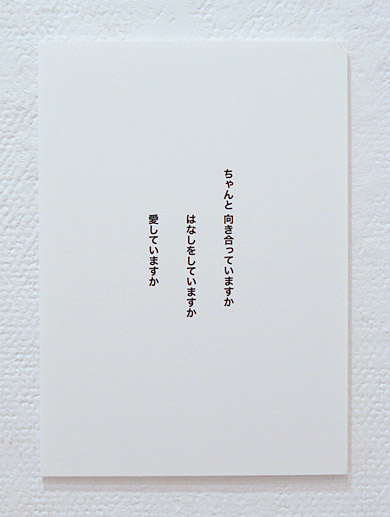 ちゃんと 向き合っていますか
はなしをしていますか
愛していますか